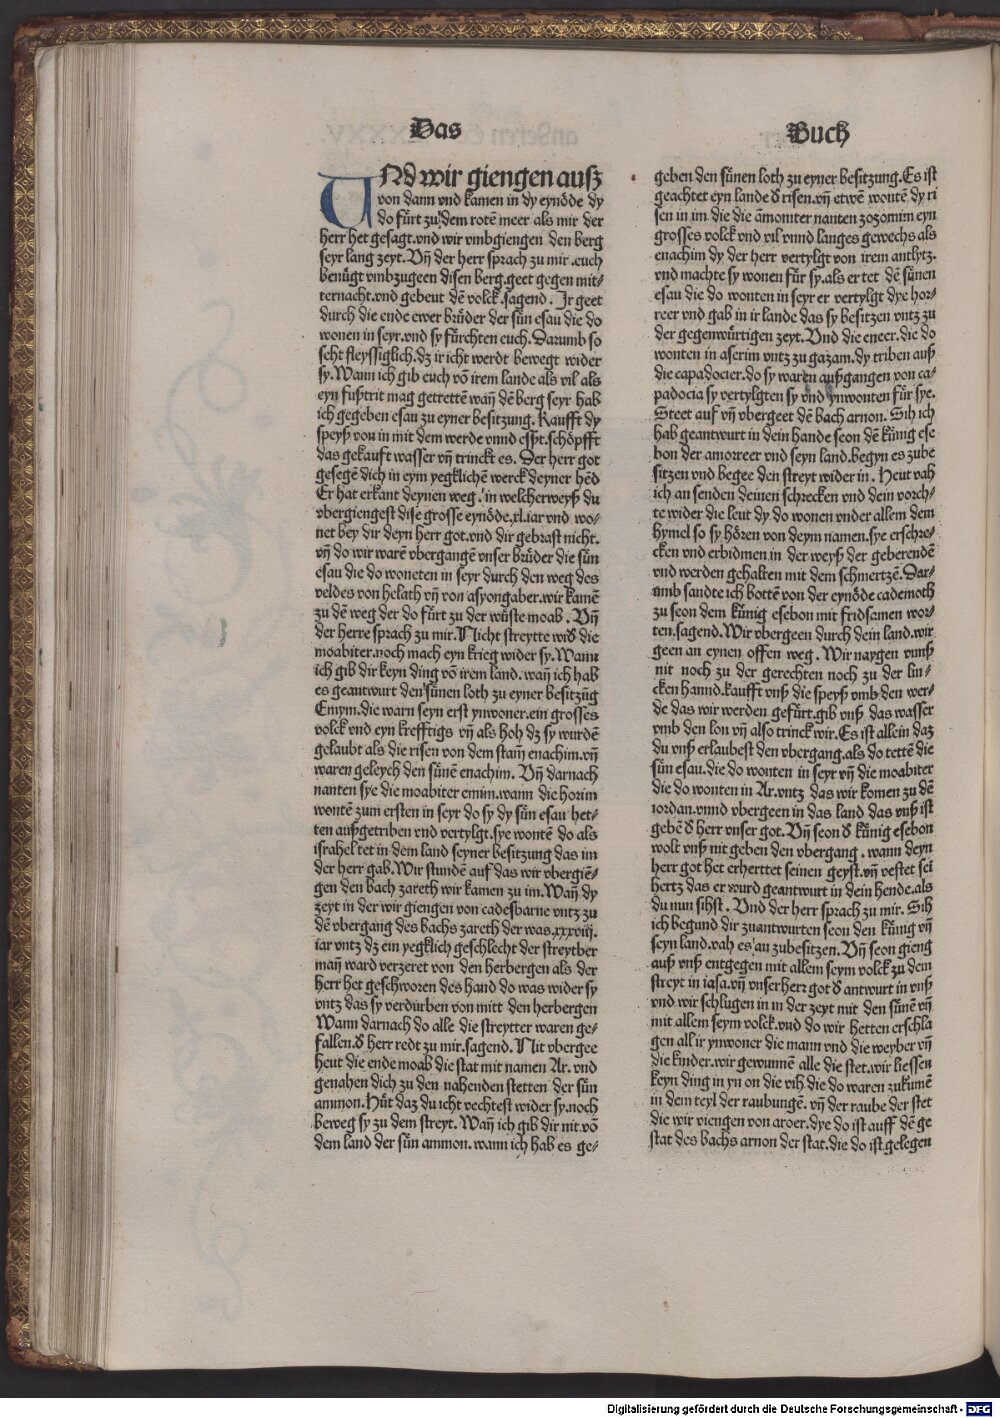 Das Buch
UNd wir giengen ausz
von dann vnd kamen in dy eynöde dy
do fürt zu dem rotē meer als mir der
herr het gesagt.vnd wir vmbgiengen den berg
seyr lang zeyt. Vn̄ der herr sprach zu mir .euch
benügt vmbzugeen disen berg.geet gegen mit⸗
ternacht.vnd gebeut dē volck.sagend. Ir geet
durch die ende ewer brüder der sün esau die do
wonen in seyr.vnd sy fürchten euch. Darumb so
seht fleyssiglich.dz ir icht werdt bewegt wider
sy. Wann ich gib euch vō irem lande als vil als
eyn fußtrit mag getrettē wan̄ dē berg seyr hab
ich gegeben esau zu eyner besitzung. Kaufft dy
speyß von in mit dem werde vnnd eßt.schöpfft
das gekauft wasser vn̄ trinckt es. Der herr got
gesegē dich in eym yegklichē werck deyner hēd
Er hat erkant deynen weg. in welcherweyß du
vbergiengest dise grosse eynöde.xl.iar vnd wo⸗
net bey dir deyn herr got.vnd dir gebrast nicht.
vn̄ do wir warē vbergangē vnser brüder die sün
esau die do woneten in seyr durch den weg des
veldes von helath vn̄ von asyongaber.wir kamē
zu dē weg der do fürt zu der wüste moab. Vn̄
der herre sprach zu mir. Nicht streytte wid̄ die
moabiter.noch mach eyn krieg wider sy. Wann
ich gib dir keyn ding vō irem land.wan̄ ich hab
es geantwurt den sünen loth zu eyner besitzūg
Emym.die warn seyn erst ynwoner.ein grosses
volck vnd eyn krefftigs vn̄ als hoh dz sy wurdē
gelaubt als die risen von dem stam̄ enachim.vn̄
waren geleych den sünē enachim. Vn̄ darnach
nanten sye die moabiter emim.wann die horim
wontē zum ersten in seyr do sy dy sün esau het⸗
ten außgetriben vnd vertylgt.sye wontē do als
israhel tet in dem land seyner besitzung das im
der herr gab. Wir stundē auf das wir vbergiē⸗
gen den bach zareth wir kamen zu im. Wan̄ dy
zeyt in der wir giengen von cadesbarne vntz zu
dē vbergang des bachs zareth der was.xxxviij.
iar vntz dz ein yegklich geschlecht der streytber
man̄ ward verzeret von den herbergen als der
herr het geschworen des hand do was wider sy
vntz das sy verdurben von mitt den herbergen
Wann darnach do alle die streytter waren ge⸗
fallen.d̄ herr redt zu mir.sagend. Nit vbergee
heut die ende moab die stat mit namen Ar. vnd
genahen dich zu den nahenden stetten der sün
ammon. Hüt daz du icht vechtest wider sy.noch
beweg sy zu dem streyt. Wan̄ ich gib dir nit vō
dem land der sün ammon. wann ich hab es ge⸗
geben den sünen loth zu eyner besitzung. Es ist
geachtet eyn lande d̄ risen.vn̄ etwē wontē dy ri
sen in im die die āmoniter nanten zozomim eyn
grosses volck vnd vil vnnd langes gewechs als
enachim dy der herr vertylgt von irem antlytz.
vnd machte sy wonen für sy.als er tet dē sünen
esau die do wonten in seyr er vertylgt dye hor⸗
reer vnd gab in ir lande das sy besitzen vntz zu
der gegenwürtigen zeyt. Vnd die eueer.die do
wonten in aserim vntz zu gazam.dy triben auß
die capadocier.do sy waren außgangen von ca⸗
padocia sy vertylgten sy vnd ynwonten für sye.
Steet auf vn̄ vbergeet dē bach arnon. Sih ich
hab geantwurt in dein hande seon dē künig ese
bon der amorreer vnd seyn land.begyn es zube
sitzen vnd begee den streyt wider in. Heut vah
ich an senden deinen schrecken vnd dein vorch⸗
te wider die leut dy do wonen vnder allem dem
hymel so sy hören von deym namen.sye erschre⸗
cken vnd erbidmen in der weyß der geberendē
vnd werden gehalten mit dem schmertzē. Dar⸗
umb sandte ich bottē von der eynöde cademoth
zu seon dem künig esebon mit fridsamen wor⸗
ten.sagend. Wir vbergeen durch dein land.wir
geen an eynen offen weg. Wir naygen vnnß
nit noch zu der gerechten noch zu der lin⸗
cken hannd.kaufft vnß die speyß vmb den wer⸗
de das wir werden gefürt.gib vnß das wasser
vmb den lon vn̄ also trinck wir. Es ist allein daz
du vnß erlaubest den vbergang.als do tettē die
sün esau.die do wonten in seyr vn̄ die moabiter
die do wonten in Ar.vntz das wir komen zu dē
iordan.vnnd vbergeen in das land das vnß ist
gebē d̄ herr vnser got. Vn̄ seon d̄ künig esebon
wolt vnß nit geben den vbergang. wann deyn
herr got het erherttet seinen geyst.vn̄ vestet sei
hertz das er wurd geantwurt in dein hende.als
du nun sihst. Vnd der herr sprach zu mir. Sih
ich begund dir zuantwurten seon den künig vn̄
seyn land.vah es an zubesitzen. Vn̄ seon gieng
auß vnß entgegen mit allem seym volck zu dem
streyt in iasa.vn̄ vnserherr got d̄ antwurt in vnß
vnd wir schlugen in in der zeyt mit den sünē vn̄
mit allem seym volck.vnd do wir hetten erschla
gen all ir ynwoner die mann vnd die weyber vn̄
die kinder.wir gewunnē alle die stet.wir liessen
keyn ding in yn on die vih die do waren zukumē
in dem teyl der raubungē. vn̄ der raube der stet
die wir viengen von aroer.dye do ist auff dē ge
stat des bachs arnon der stat.die do ist gelegen
Digitalisierung gefördert durch die Deutsche Forschungsgemeinschaft - DFG